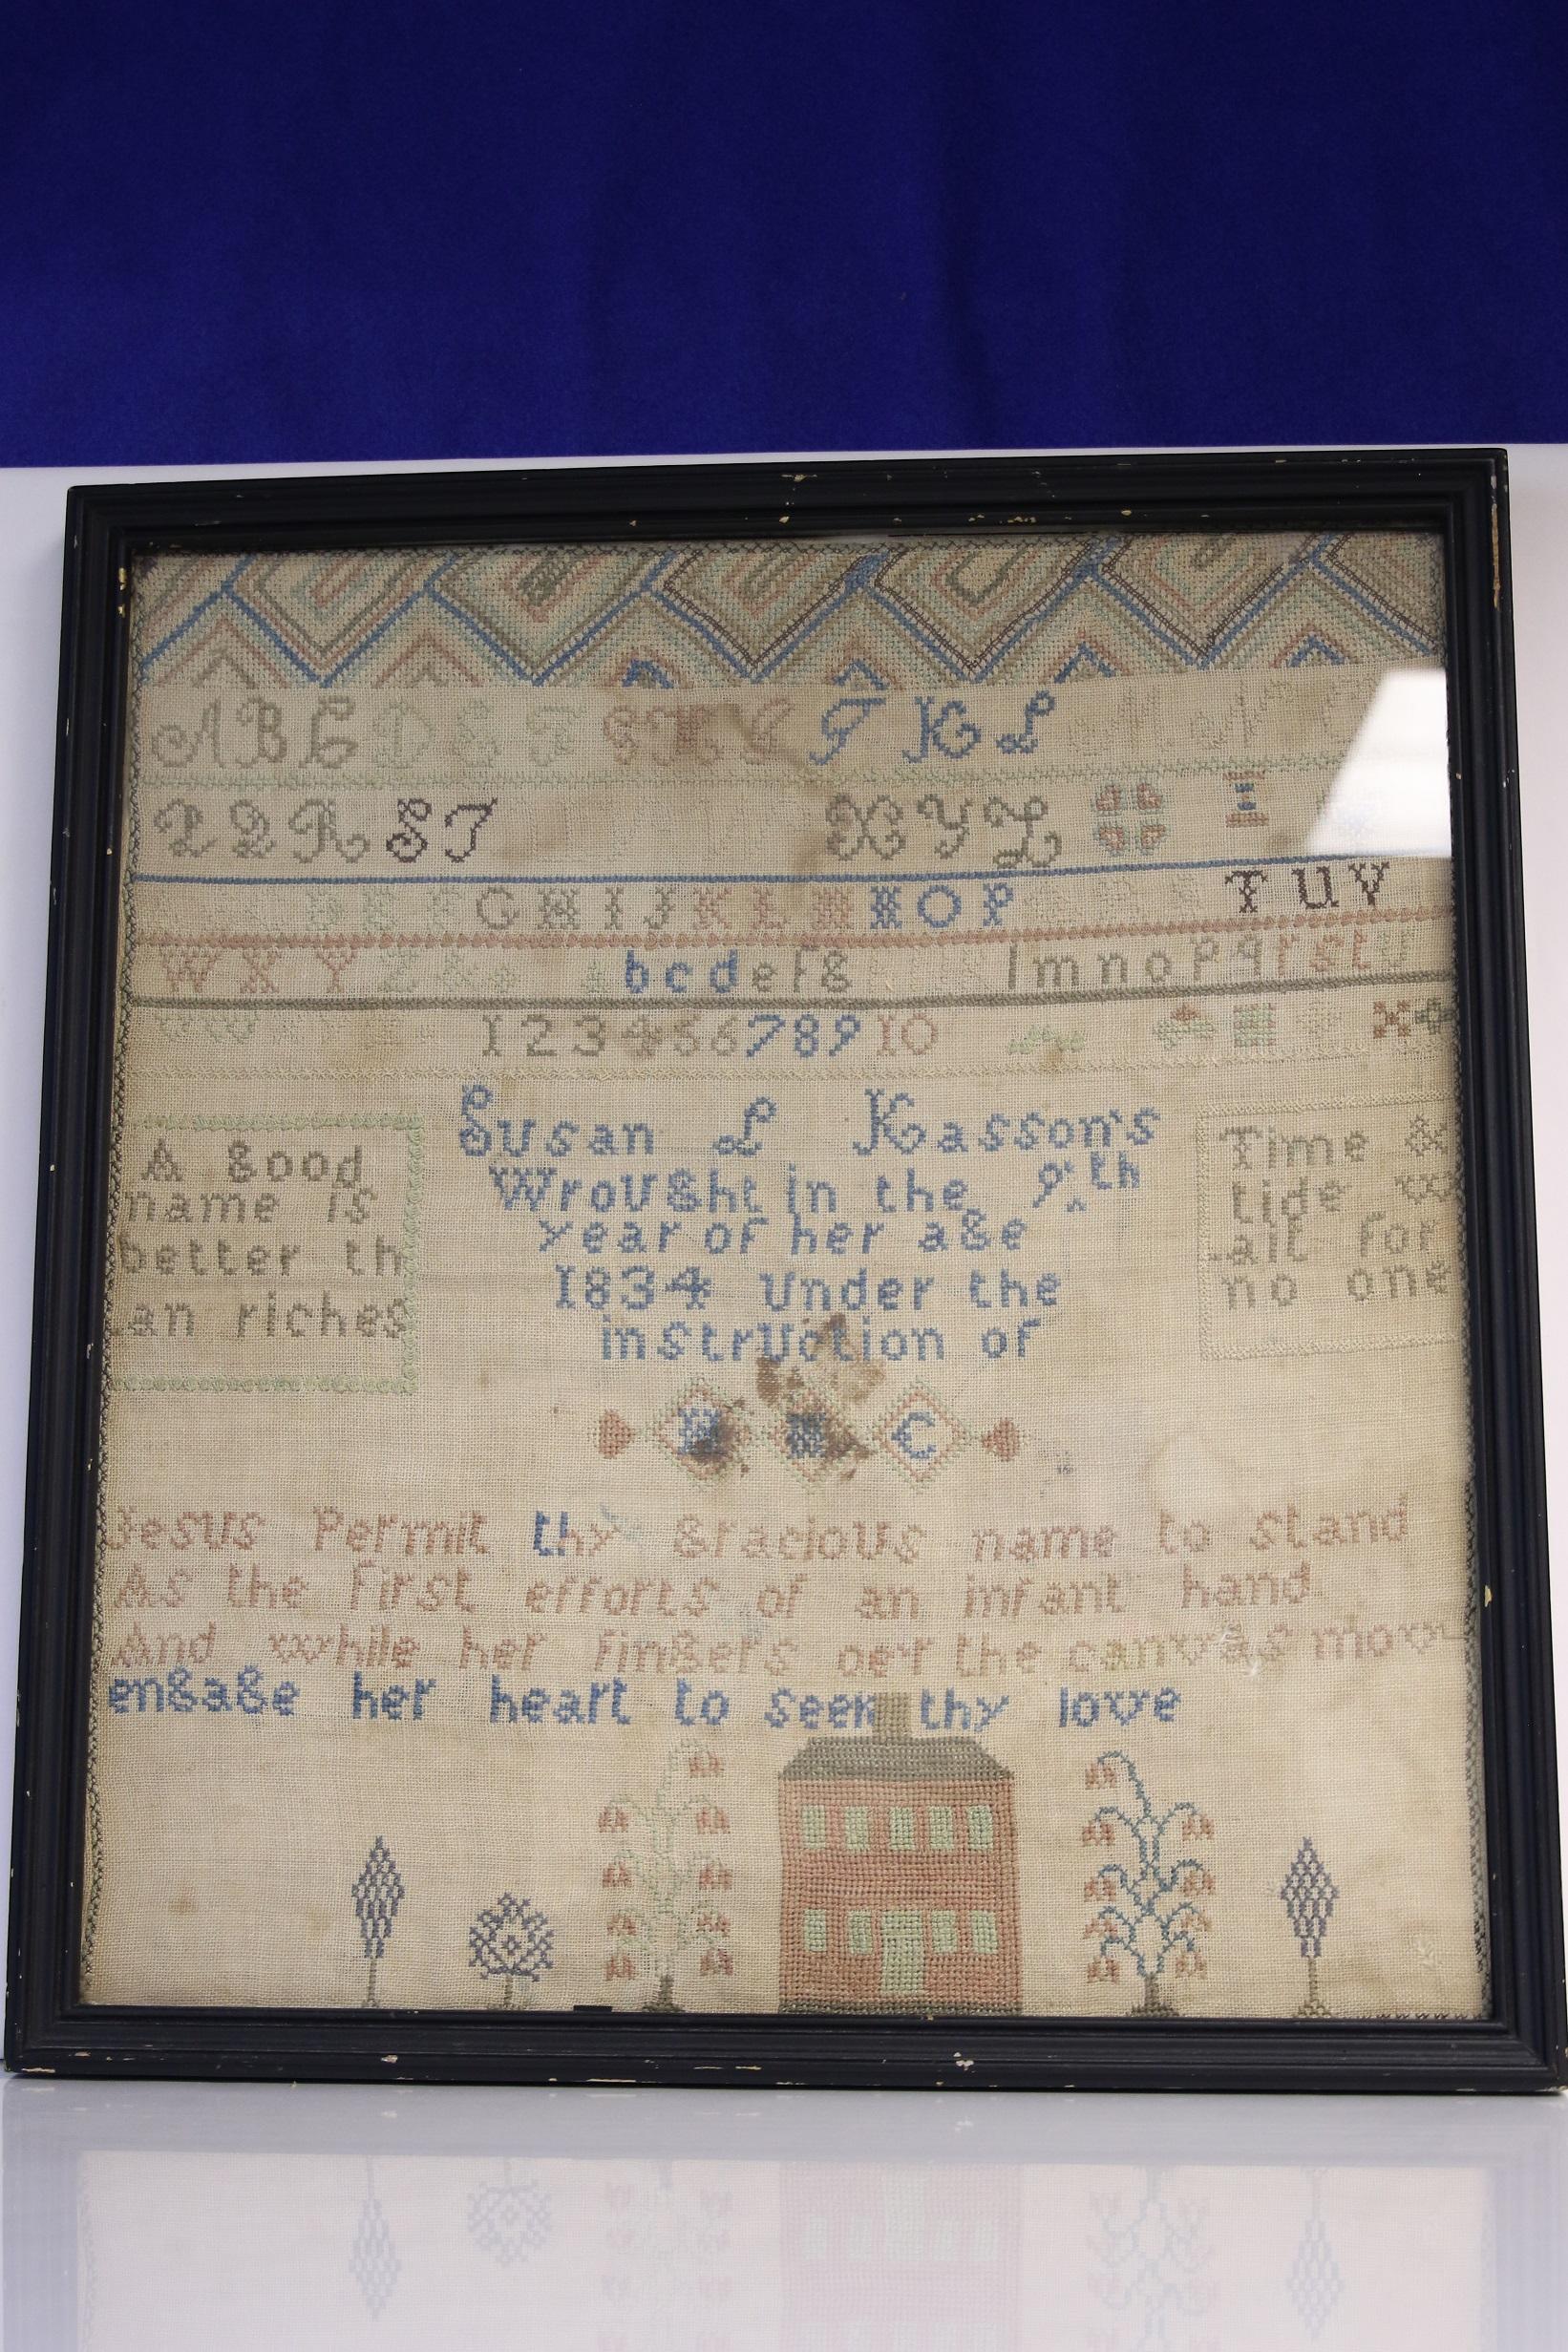 A B C D E F G H I J K L M N O
P Q R S T U V W X Y Z
D E F G H I J K L M N O P Q R S T U V
W X Y Z & a b c d e f g h i k l m n o p q r s t u
v w x y z 1 2 3 4 5 6 7 8 9 10
Susan L Kasson's
Wrought in the 9th
year of her age
1834 Under the
instruction of
H M C
A good
name is
better th
an riches
Time &
tide w
ait for
no one
Jesus Permit thy gracious name to stand
As the first efforts of an infant hand
And while her fingers oer the canvas mov
engage her heart to seek thy love